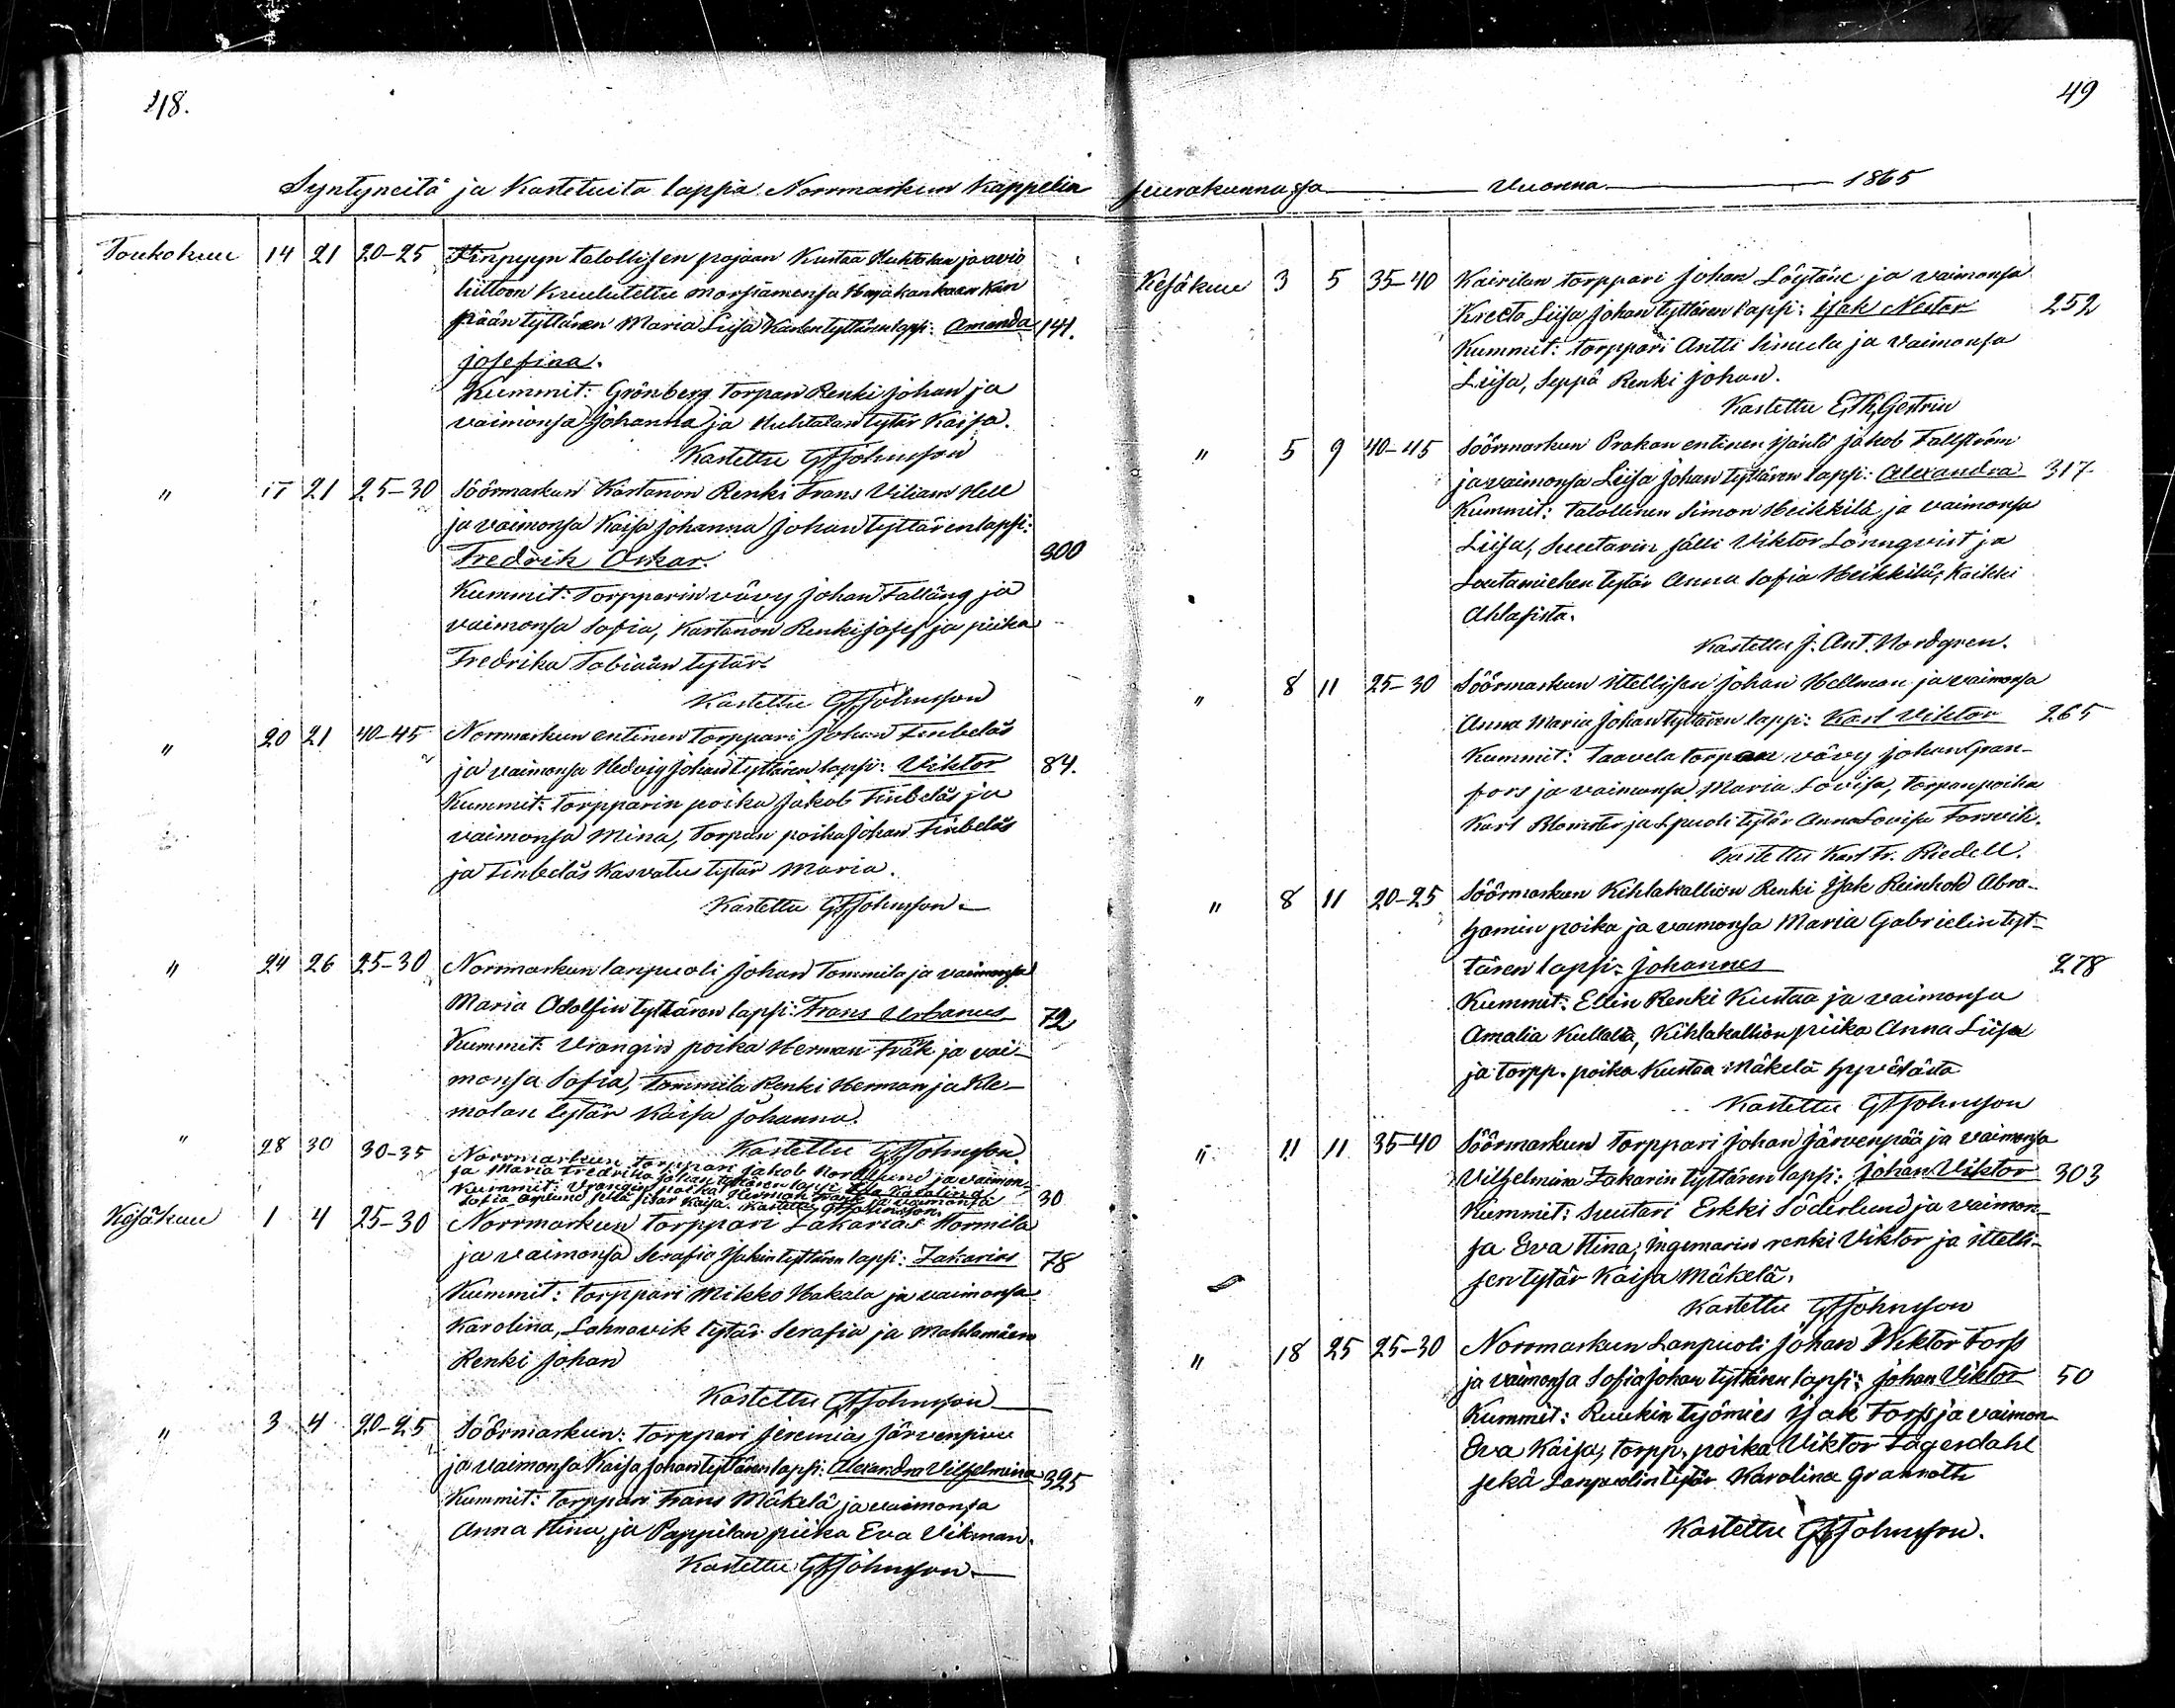 48.
Syntyneitä ja Kastetuita lapsia Norrmarkun Kappelin
Toukokuu 14 21 20-25 Finpyyn talollisen pojaan Kustaa Huhtalan ja avio
liittoon Kuulutettu morsiamensa
pään tyttären Maria Liisa tyttären lapsi: Amanda 144.
Josefina.
Kummit: Grönberg torpan Renki Johan ja
vaimonsa Johanna ja Huhtalan tytär Kaisa.
Kastettu GFJohnsson
" 17 21 25-30 Söörmarkun Kartanon Renki Frans Viliam Hell
ja vaimonsa Kaisa Johanna Johan tyttären lapsi:
Fredrik Oskar. 300
Kummit: Torpparin vävy Johan Talläng ja
vaimonsa Sofia, Kartanon Renki Josef ja piika
Fredrika Tobiaan tytär.
Kastettu GFJohnsson
" 20 21 40-45 Norrmarkun entinen torppari Johan Finbeläs
ja vaimonsa Hedvig Johan tyttären lapsi: Viktor 84.
Kummit: Torpparin poika Jakob Finbeläs ja
vaimonsa Mina, Torpan poika Johan Finbeläs
ja Finbeläs Kasvatus tytär Maria.
Kastettu GFJohnsson
" 24 26 25-30 Norrmarkun lanpuoli Johan Tommila ja vaimonsa
Maria Adolfin tyttären lapsi: Frans Urbanus 72
Kummit: Vrangin poika Herman Fräk ja vai-
monsa Sofia, Tommila Renki Herman ja Kle-
molan tytär Kaisa Johanna.
Kastettu GFJohnsson.
" 28 30 30-35 Norrmarkun torppari Jakob Norrlund ja vaimon-
sa Maria Fredrika Johan tyttären lapsi Karolina
Kummit: Vrangin poika Herman Fräk ja vaimonsa 30
Sofia Kaisa. Kastettu GFJohnsson.
Kesäkuu 1 4 25-30 Norrmarkun torppari Zakarias Hormila
ja vaimonsa Serafia Isakin tyttären lapsi: Zakarias 78
Kummit: torppari Mikko Hakala ja vaimonsa
Karolina, Lahnavik tytär Serafia ja Mahlamäen
Renki Johan
Kastettu GFJohnsson
" 3 4 20-25 Söörmarkun: torppari Jeremias Järvenpää
ja vaimonsa Kaisa Johan tyttären lapsi: Alexandra Vilhelmina 325
Kummit: torppari Frans Mäkelä ja vaimonsa
Anna Stina, ja Pappilan piika Eva Vikman.
Kastettu GFJohnsson
49
seurakunnassa vuonna 1865
Kesäkuu 3 5 35-40 Kairilan torppari Johan Löytäne ja vaimonsa
Kreeta Liisa Johan tyttären lapsi: Isak Nestor 252
Kummit: torppari Antti Simula ja vaimonsa
Liisa, Seppä Renki Johan.
Kastettu E.Th.Gestrin
" 5 9 40-45 Söörmarkun Prakan entinen isäntä Jakob Tallström
ja vaimonsa Liisa Johan tyttären lapsi: Alexandra 317
Kummit: talollinen Simon Heikkilä ja vaimonsa
Liisa, Suutarin sälli Viktor Lönnqvist ja
Lautamiehen tytär Anna Sofia Heikkilä, Kaikki
Ahlaisista.
Kastettu J. Ant. Nordgren.
" 8 11 25-30 Söörmarkun itellisen Johan Hellman ja vaimonsa
Anna Maria Johan tyttären lapsi: Karl Viktor 265
Kummit: Taavela torpan vävy Johan Gran-
fors ja vaimonsa Maria Lovisa, torpan poika
Karl Blomster ja Spuoli tytär Anna Lovisa Forsvik.
Kastettu Karl Fr. Riedell.
" 8 11 20-25 Söörmarkun Kihlakallion Renki Isak Reinhold Abra-
hamin poika ja vaimonsa Maria Gabrielin tyt-
tären lapsi: Johannes 278
Kummit: Ellin Renki Kustaa ja vaimonsa
Amalia Kullalta, Kihlakallion piika Anna Liisa
ja torpp. poika Kustaa Mäkelä
Kastettu GFJohnsson
" 11 11 35-40 Söörmarkun torppari Johan Järvenpää ja vaimonsa
Vilhelmina Zakarin tyttären lapsi: Johan Viktor 303
Kummit: Suutari Erkki Söderlund ja vaimon-
sa Eva Stina, Ingemarin renki Viktor ja itelli-
sen tytär Kaisa Mäkelä.
Kastettu GFJohnsson
" 18 25 25-30 Norrmarkun Lanpuoli Johan Wiktor Forss
ja vaimonsa Sofia Johan tyttären lapsi: Johan Viktor 50
Kummit: Ruukin työmies Isak Forss ja vaimon-
Eva Kaisa, torpp. poika Viktor Lagerdahl
sekä Lanpuolin tytär Karolina Granroth
Kastettu GFJohnsson.